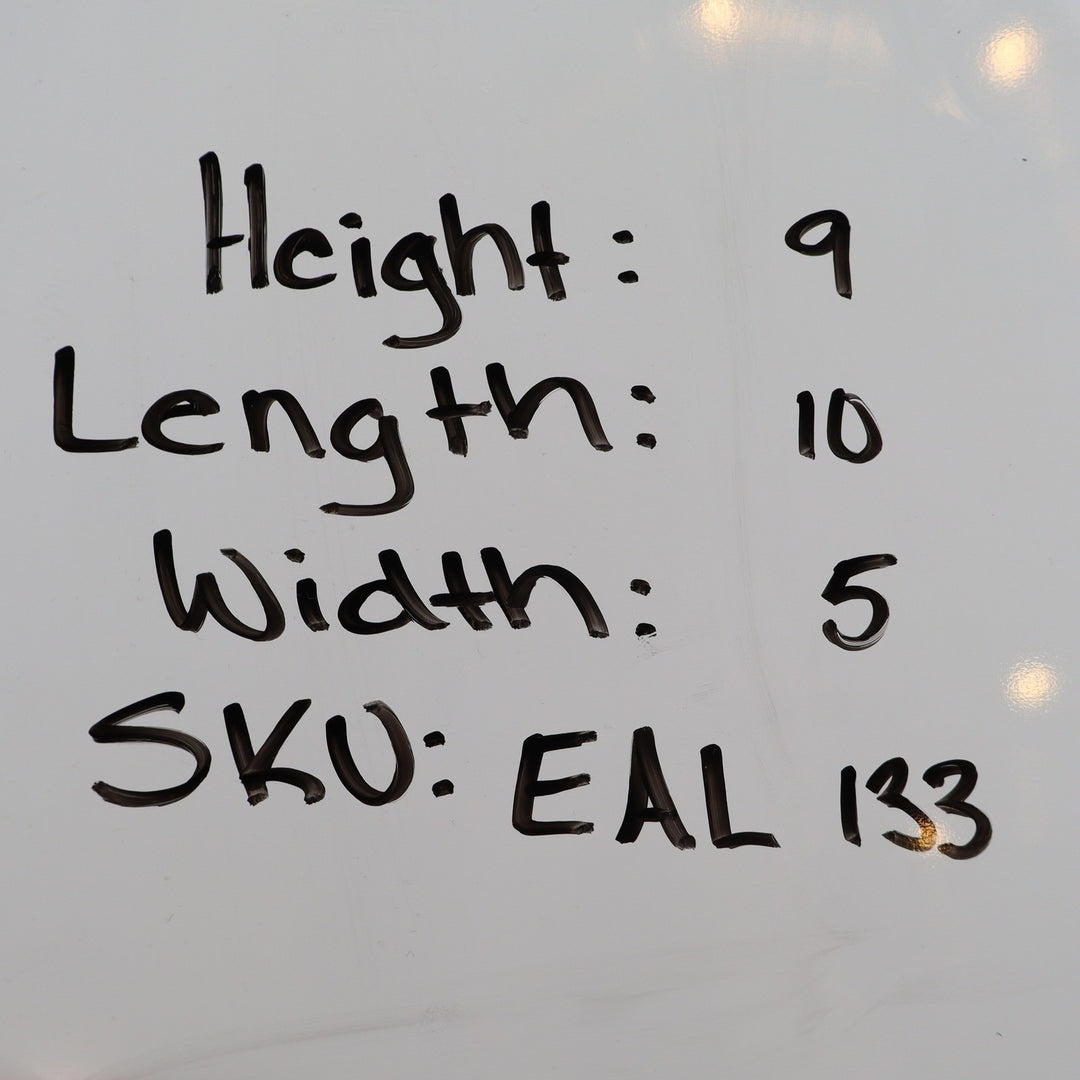 Height: 9
Length: 10
Width: 5
SKU: EAL 133